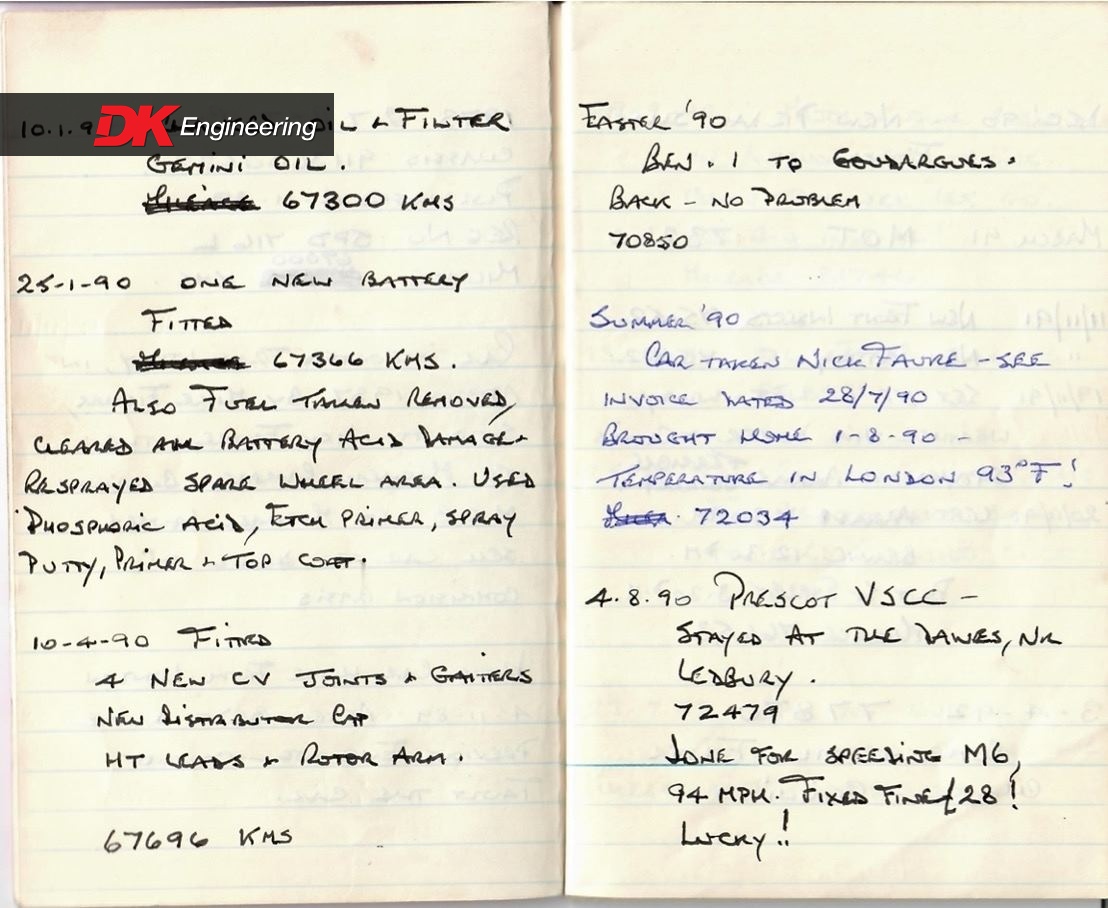 10.1.9
DK Engineering
OIL & FILTER
GEMINI OIL.
67300 KMS
25-1-90 ONE NEW BATTERY
FITTED
67366 KMS.
ALSO FUEL TANKEN REMOVED,
CLEARED ALL BATTERY ACID DAMAGE.
RESPRAYED SPARE WHEEL AREA. USED
PHOSPHORIC ACID, ETCH PRIMER, SPRAY
PUTTY, PRIMER & TOP COAT.
10-4-90 FITTED
4 NEW CV JOINTS & GAITERS
NEW DISTRIBUTOR CAP
HT LEADS & ROTOR ARM.
67696 KMS
EASTER '90
BEN. 1 TO GOUDARGUES.
BACK - NO PROBLEM
70850
SUMMER '90
CAR TAKEN NICK FAURE - SEE
INVOICE DATED 28/7/90
BROUGHT HOME 1-8-90 -
TEMPERATURE IN LONDON 93°F!
72034
4.8.90 PRESCOT VSCC -
STAYED AT THE DAWES, NR
LEDBURY.
72479
DONE FOR SPEEDING M6,
94 MPH. FIXED FINE £28!
LUCKY!!